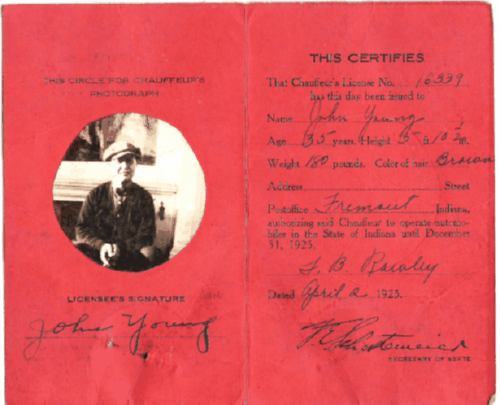 THIS CIRCLE FOR CHAUFFEUR'S
PHOTOGRAPH
LICENSEE'S SIGNATURE
John Young
THIS CERTIFIES
That Chauffeur's License No. 16339
has this day been issued to
Name John Young
Age 35 years. Height 5 ft 10 in.
Weight 180 pounds. Color of hair Brown
Address Street
Postoffice Fremont Indiana,
authorizing said Chauffeur to operate automo-
biles in the State of Indiana until December
31, 1925.
Dated April 2 1925.
SECRETARY OF STATE